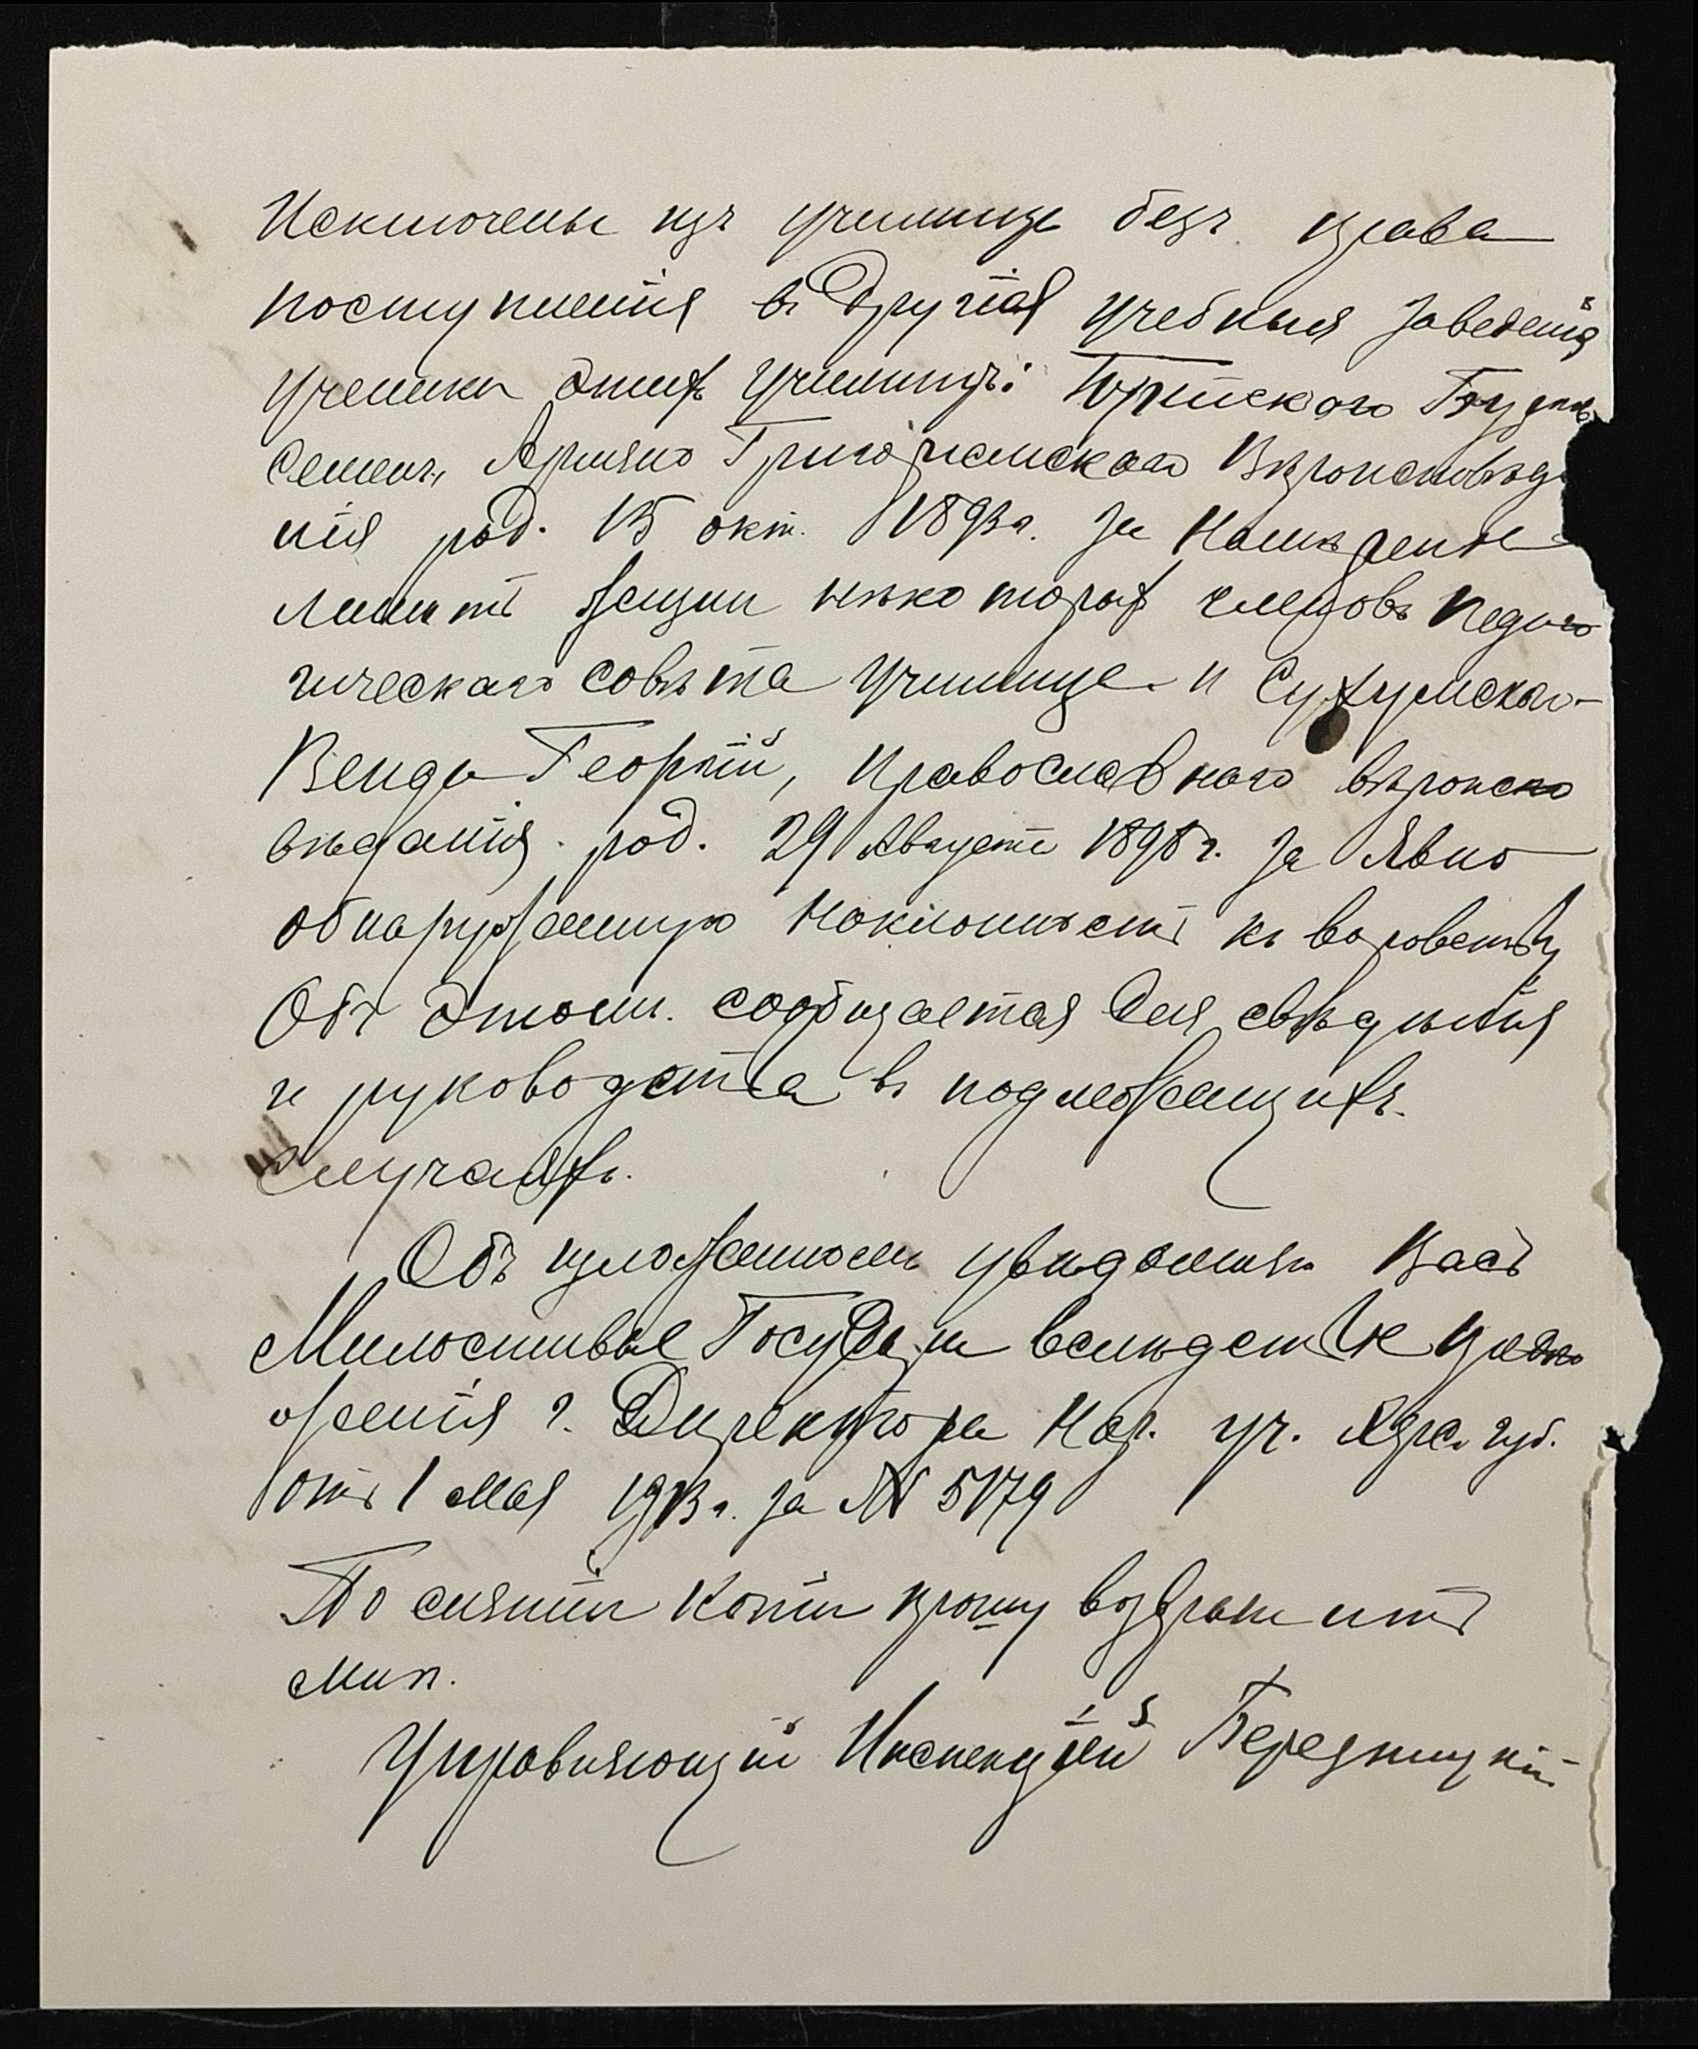 Исключены изъ училища безъ права
поступленія въ другія учебныя заведенія
ученики этихъ училищъ: Горійскаго
Семенъ, Армяно Григоріанскаго Вѣроисповѣд
нія род. 15 окт. 1893 г. за Намѣреніе
лишить жизни нѣкоторыхъ членовъ Педаго
гическаго совѣта училища и Сухумскаго
Венда Георгій, православнаго вѣроиспо
вѣданія род. 29 Августа 1898 г. за явно
обнаруженную наклонность къ воровству
Объ этомъ сообщается для свѣдѣнія
и руководства въ подлежащихъ
случаяхъ.
Объ изложенномъ увѣдомляю Васъ
Милостивые Государи вслѣдствіе предло
женія г. Директора Нар. уч. губ.
отъ 1 мая 1913 г. за № 5179
По снятіи копіи прошу возвратить
мнѣ.
Управляющій Инспекціей